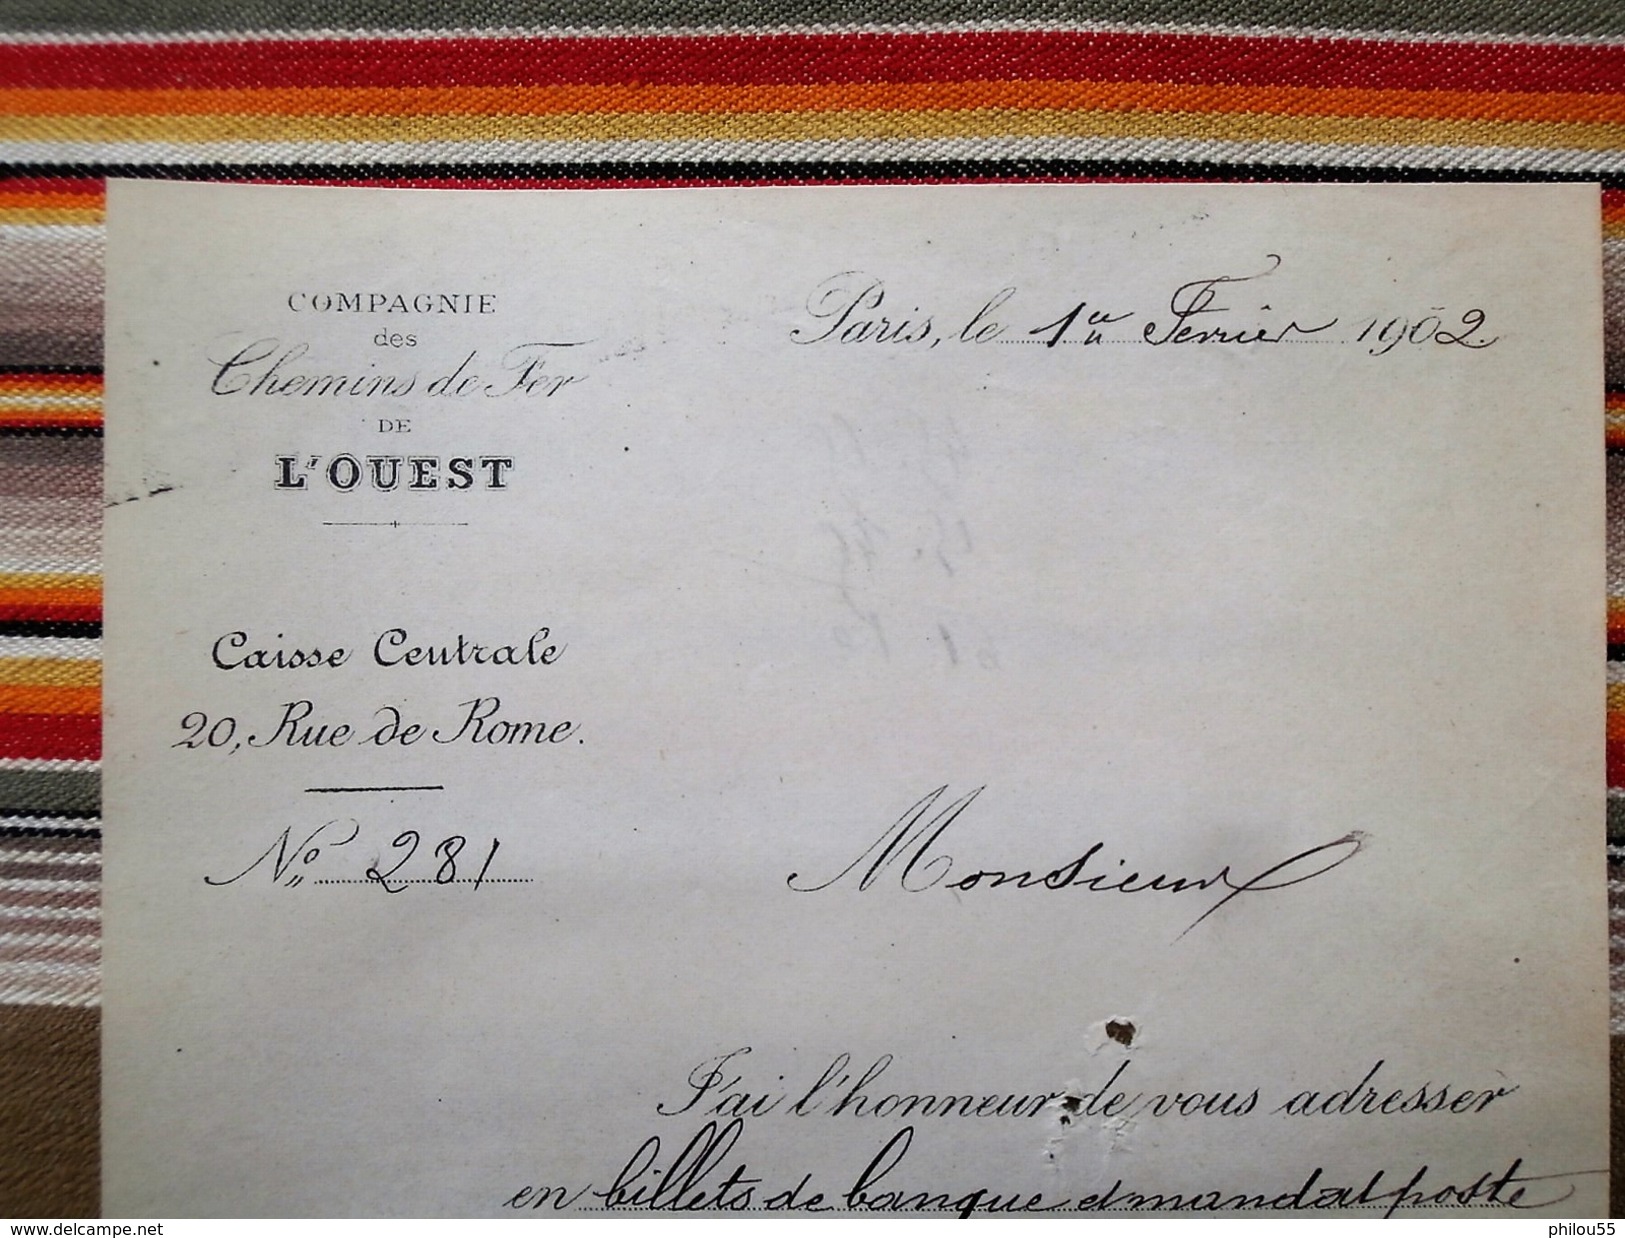 COMPAGNIE
des
Chemins de Fer
DE
L'OUEST
Caisse Centrale
20, Rue de Rome.
No 281
Paris, le 1er Fevrier 1902.
Monsieur
J'ai l'honneur de vous adresser
en billets de banque et mandat poste
delcampe.net
philou55